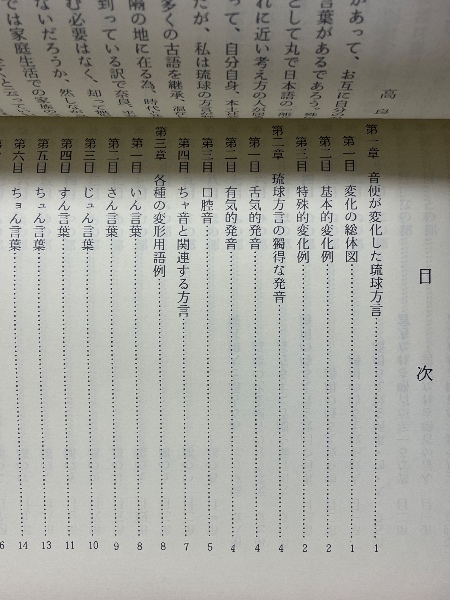 高良
があって、お互に自分の
言葉があるであろう。
として丸で日本語の一部
れに近い考え方の人が
って、自分自身、本土
たが、私は琉球の方言
多くの古語を継承、温存
隔の地に在る為、時代
到っている訳で奈良、平
む必要はなく、却って
ないだろうか、然しなが
では家庭生活での家族の
目次
第一章 音便が変化した琉球方言 1
第一目 変化の総体図 1
第二目 基本的変化例 2
第三目 特殊的変化例 2
第二章 琉球方言の獨得な発音 4
第一目 舌気的発音 4
第二目 有気的発音 4
第三目 口腔音 5
第四目 チャ音と関連する方言 7
第三章 各種の変形用語例 8
第一目 いん言葉 8
第二目 さん言葉 9
第三目 じょん言葉 10
第四目 すん言葉 11
第五目 ちゅん言葉 13
第六目 ちょん言葉 14